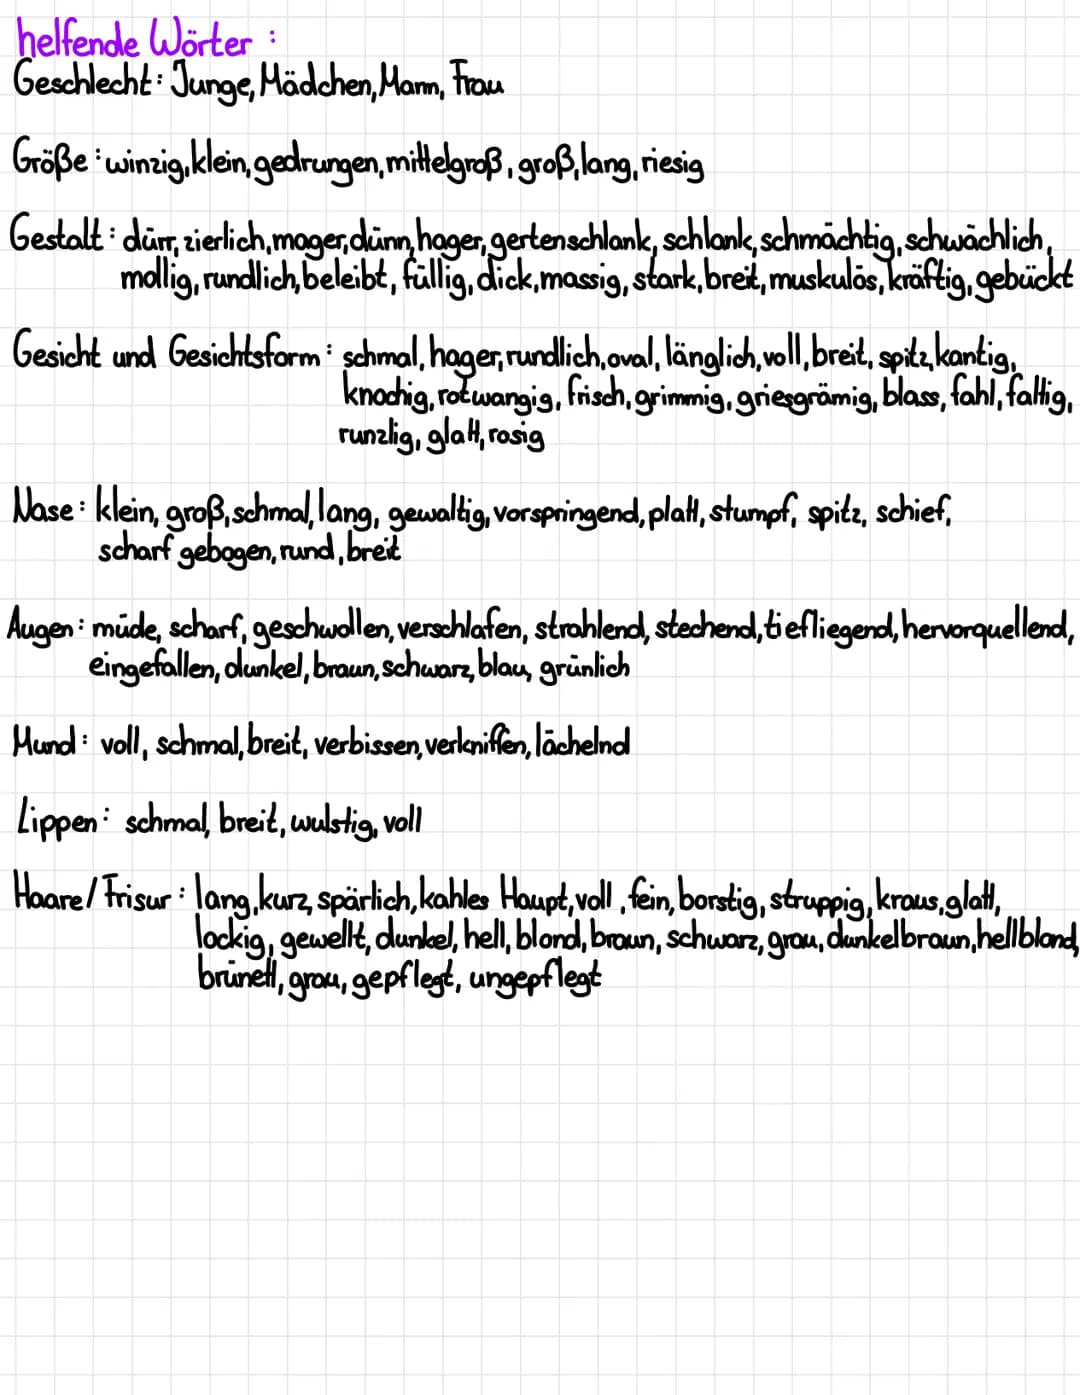 helfende Wörter :
Geschlecht: Junge, Mädchen, Mann, Frau
Größe : winzig, klein, gedrungen, mittelgroß, groß, lang, riesig
Gestalt : dürr, zierlich, mager, dünn, hager, gertenschlank, schlank, schmächtig, schwächlich,
mollig, rundlich, beleibt, füllig, dick, massig, stark, breit, muskulös, kräftig, gebückt
Gesicht und Gesichtsform : schmal, hager, rundlich, oval, länglich, voll, breit, spitz, kantig,
knochig, rotwangig, frisch, grimmig, griesgrämig, blass, fahl, faltig,
runzlig, glatt, rosig
Nase : klein, groß, schmal, lang, gewaltig, vorspringend, platt, stumpf, spitz, schief,
scharf gebogen, rund, breit
Augen : müde, scharf, geschwollen, verschlafen, strahlend, stechend, tiefliegend, hervorquellend,
eingefallen, dunkel, braun, schwarz, blau, grünlich
Mund : voll, schmal, breit, verbissen, verkniffen, lächelnd
Lippen : schmal, breit, wulstig, voll
Haare / Frisur : lang, kurz, spärlich, kahles Haupt, voll, fein, borstig, struppig, kraus, glatt,
lockig, gewellt, dunkel, hell, blond, braun, schwarz, grau, dunkelbraun, hellblond,
brünett, grau, gepflegt, ungepflegt